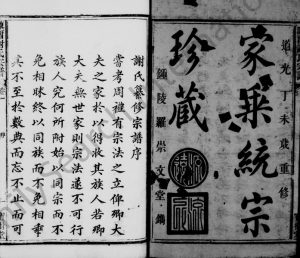 道光丁未歲重修
家乘統宗
珍藏
鍾陵羅崇文堂鐫
謝氏纂修宗譜序
嘗考周禮有宗法之立卿大
夫之家於以得收其族人若鄉
大夫無世家則宗法遂不可行
族人究何所附始以同宗而不
免相眛終以同族而不免相乖
其不至於數典而忘不止而可